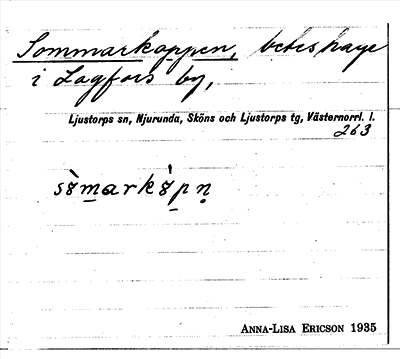 Sommarkoppen, beteshage
i Lagfors by,
Ljustorps sn, Njurunda, Sköns och Ljustorps tg, Västernorrl. l.
263
ANNA-LISA ERICSON 1935